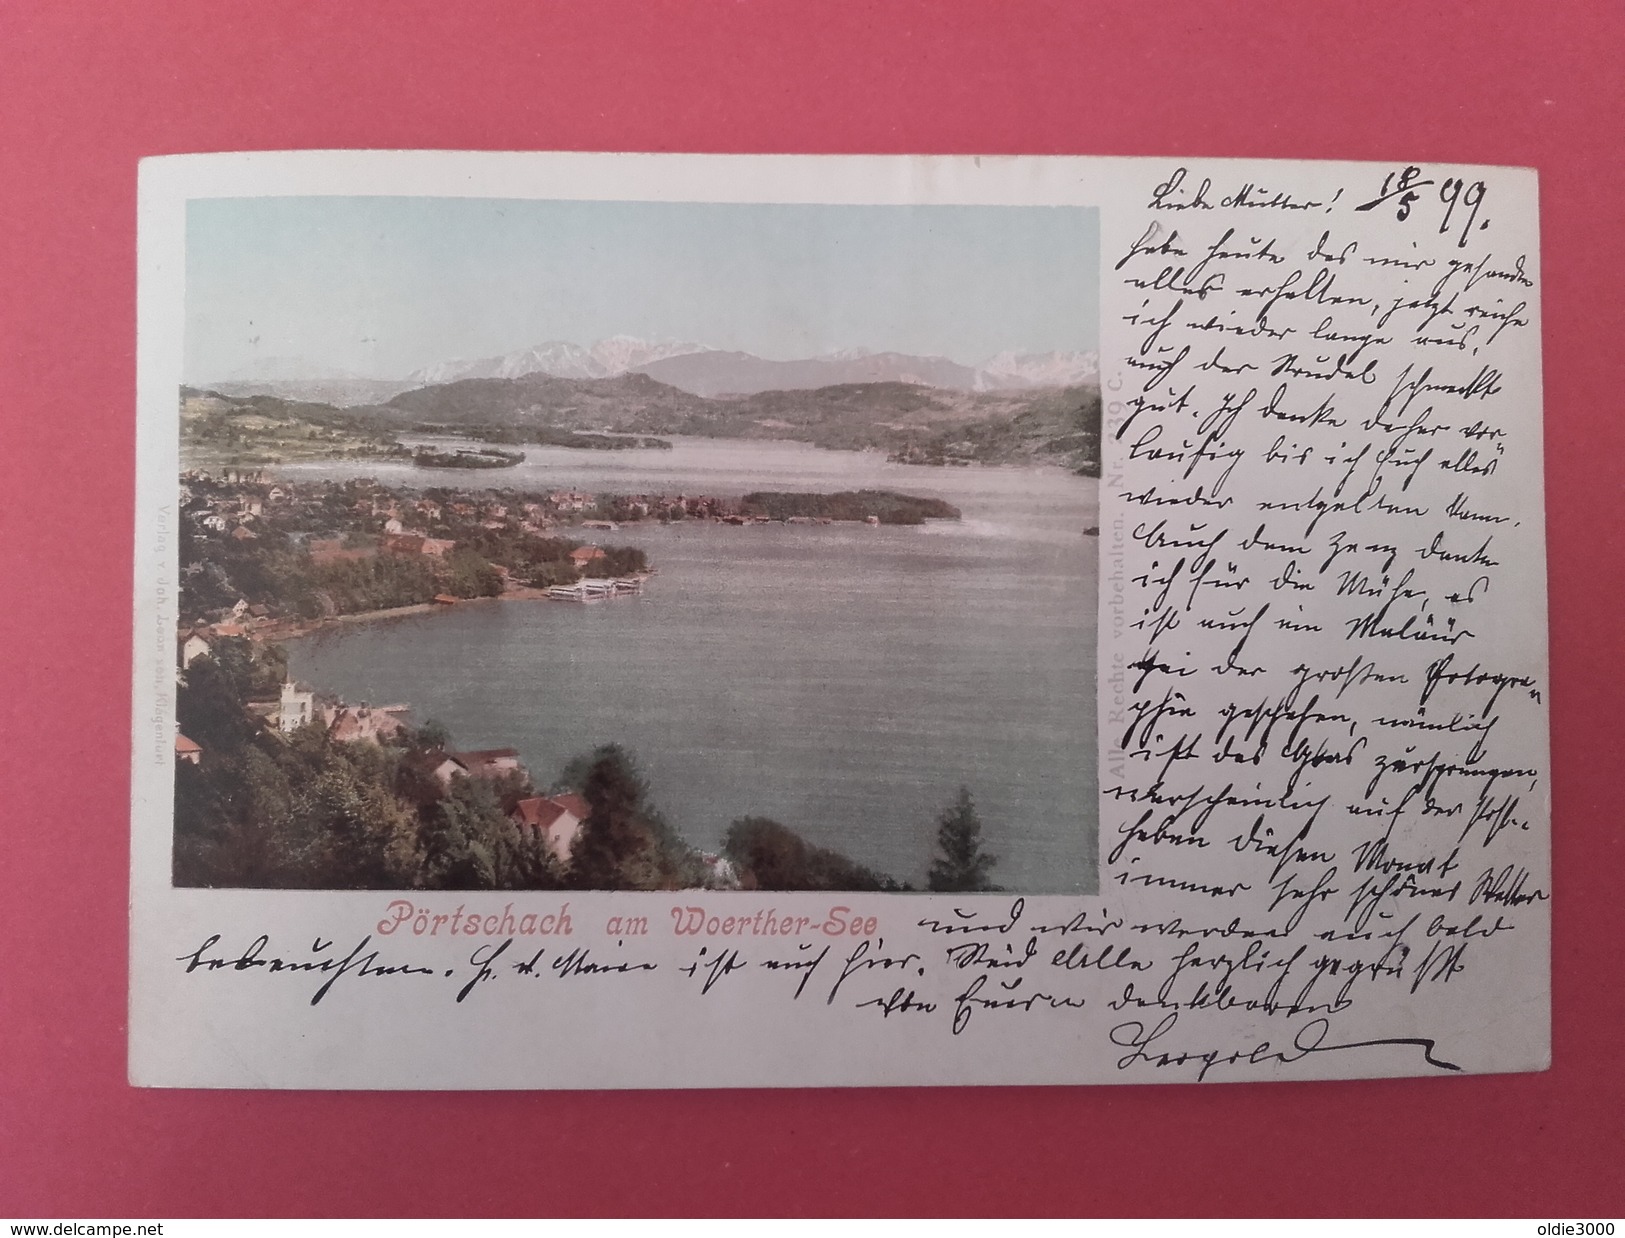 Liebe Mutter! 18/5 99.
habe heute das mir gesandte
alles erhalten, jetzt reiche
ich wieder lange aus,
auch der Strudel schmeckt
gut. Ich danke daher vor-
läufig bis ich Euch alles
wieder entgelten kann.
Auch dem danke
ich für die Mühe, es
ist auch ein Maläür
bei der großen Fotogra-
phie geschehen, nämlich
ist das Glas zersprungen,
warscheinlich auf der Post.
haben diesen Monat
immer sehr schönes Wetter
und wir werden auch bald
ist auch hier. Seid Alle herzlich gegrüßt
von Euerm dankbaren
Leopold
Pörtschach am Woerther-See
Alle Rechte vorbehalten. Nr. 239 C.
Verlag v. Joh. Leon sen., Klagenfurt
www.delcampe.net
oldie3000